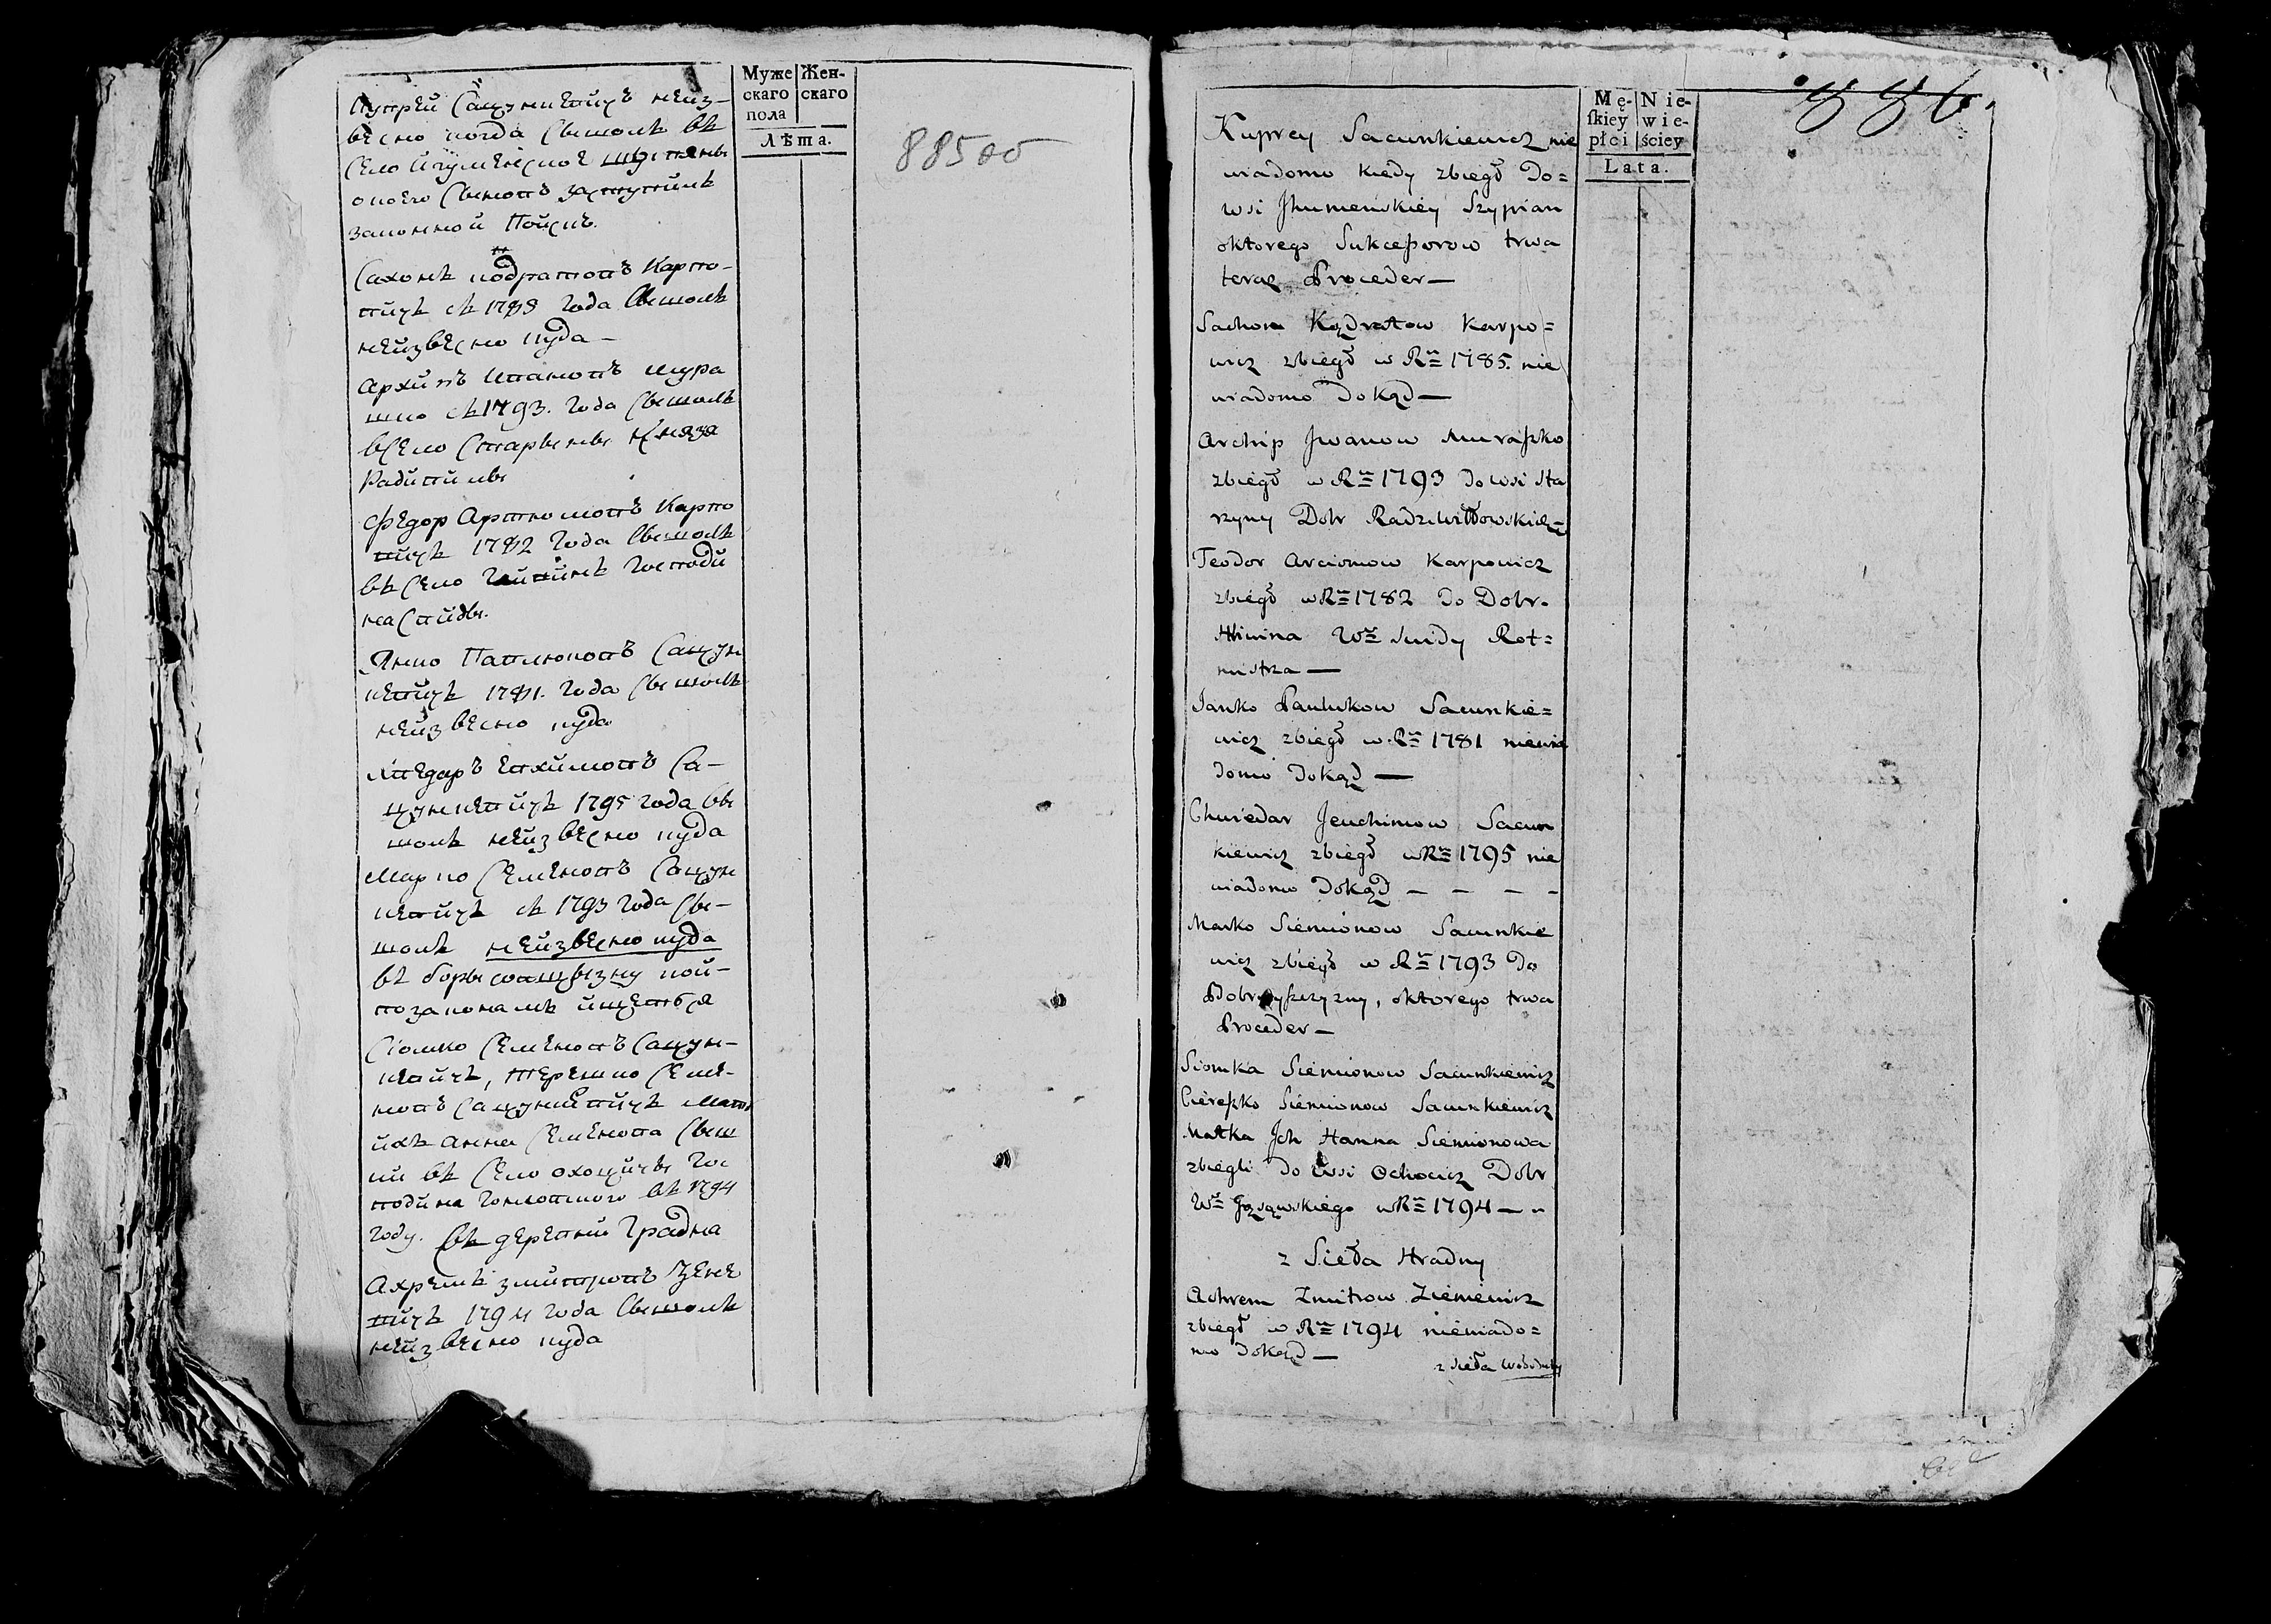 Муже Жен-
скаго скаго
пола
Лѣта.
885 об
Купрей Сацункевичъ неиз-
весно когда Сьшолъ въ
Село Игуменское
оноего Сыновъ заступилъ
законной Поискъ.
Сахонъ кодратовъ Карпо-
вичъ съ 1785 года Сышолъ
неизвесно куда –
Архипъ Ивановъ Мура
шко съ 1793. года Сышолъ
вСело Старыны Князя
Радивилы
Федор Артюмовъ Карпо
вичъ 1782 года Сышолъ
въ Село Господи
на Свиды.
Янко Павлюковъ Сацун
кевичъ 1781. года Сышолъ
неизвесно куда
Хведаръ Евхимовъ Са-
цункевичъ 1795 года Сы
шолъ неизвесно куда
Марко Семеновъ Сацун
кевичъ съ 1793 года Сы-
шолъ неизвесно куда
въ кои-
позаконамъ ищетъся
Сіомко Семеновъ Сацун-
кевичъ, терешко Семе-
новъ Сацункевичъ Мать
ихъ анна Семенова Сыш
ли въ Село охоцичы Гос
подина въ 1794
году. въ деревни Градна
Ахремъ змитровъ Зене
вичъ 1794 года Сышолъ
неизвесно куда
886.
Mę- Nie-
ſkiey wie-
płci ściey
Lata.
Kuprey Sacunkiewicz nie
wiadomo kiedy zbiegł Do=
wsi Jhumeńskiey Szypian
oktorego Sukceſsorow trwa
teraz Proceder —
Sachon Kądratow Karpo=
wicz zbiegł w Rᵘ 1785. nie
wiadomo Dokąd —
Archip Jwanow Muraſzko
zbiegł w Rᵘ 1793 do wsi Sta
rzyny Dobr Radziwiłłowskich
Teodor Arciomow Karpowicz
zbiegł w Rᵘ 1782 do Dobr.
Hliwina Wᵒ Swidy Rot=
mistrza —
Janko Pawlukow Sacunkie=
wicz zbiegł w Rᵘ 1781 niewia
domo Dokąd —
Chwiedar Jeuchimow Sacun
kiewicz zbiegł w Rᵘ 1795 nie
wiadomo Dokąd — — — —
Marko Siemionow Sacunkie
wicz zbiegł w Rᵘ 1793 Do
oktorego trwa
Proceder —
Siomka Siemionow Sacunkiewicz
Ciereſzko Siemionow Sacunkiewicz
Matka Jch Hanna Siemionowa
zbiegli do wsi Ochocicz Dobr
Wᵒ w Rᵘ 1794 —
z Sieła Hradny
Achrem Zmitrow Zieniewicz
zbiegł w Rᵘ 1794 niewiado=
mo Dokąd —
z Sieła